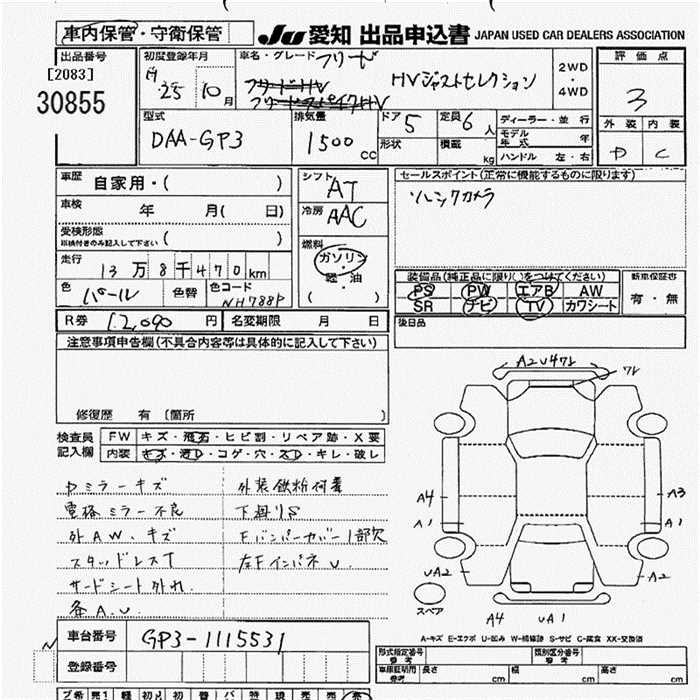 車内保管・守衛保管
JU 愛知 出品申込書 JAPAN USED CAR DEALERS ASSOCIATION
出品番号
[2083]
30855
初度登録年月
25 10月
車名・グレード フリード
フリードHV
フリードスパイクHV
HVジャストセレクション
2WD
・
4WD
評価点
3
外装 内装
D C
型式
DAA-GP3
排気量
1500 cc
ドア 5
形状
定員 6 人
積載 kg
ディーラー・並 行
モデル年式 年
ハンドル 左・右
車歴 自家用・( )
車検 年 月( 日)
受検形態
※検付きのみ記入して下さい ( )
走行 13万8千470km
色 パール 色替 色コード NH788P
シフト AT
冷房 AAC
燃料
ガソリン
・
軽・油
( )
セールスポイント(正常に機能するものに限ります)
ソニックカメラ
装備品(純正品に限り○をつけてください)
PS PW エアB AW
SR ナビ TV カワシート
新車保証書
有・無
後日品
R券 12,090 円 名変期限 月 日
注意事項申告欄(不具合内容等は具体的に記入して下さい)
修復歴 有 〔箇所 〕
検査員
記入欄
FW キズ・飛石・ヒビ割・リペア跡・X要
内装 キズ・汚D・コゲ・穴・スD・キレ・破し
Dミラーキズ 外装鉄粉付着
電格ミラー不良 下廻りS
外AW、キズ FバンパーカバーI部欠
スタッドレスT 左FインパネU
サードシート外れ
各A.U.
A2U4ワレ
ワレ
A4
A1
UA2
A3
A1
A2
スペア
A4 UA1
A-キズ E-エクボ U-凹み W-補修跡 S-サビ C-腐食 XX-交換済
車台番号 GP3-1115531
登録番号
形式指定番号
参考
類別区分番号
参考
車庫証明用
参考
長さ cm 幅 cm 高さ cm